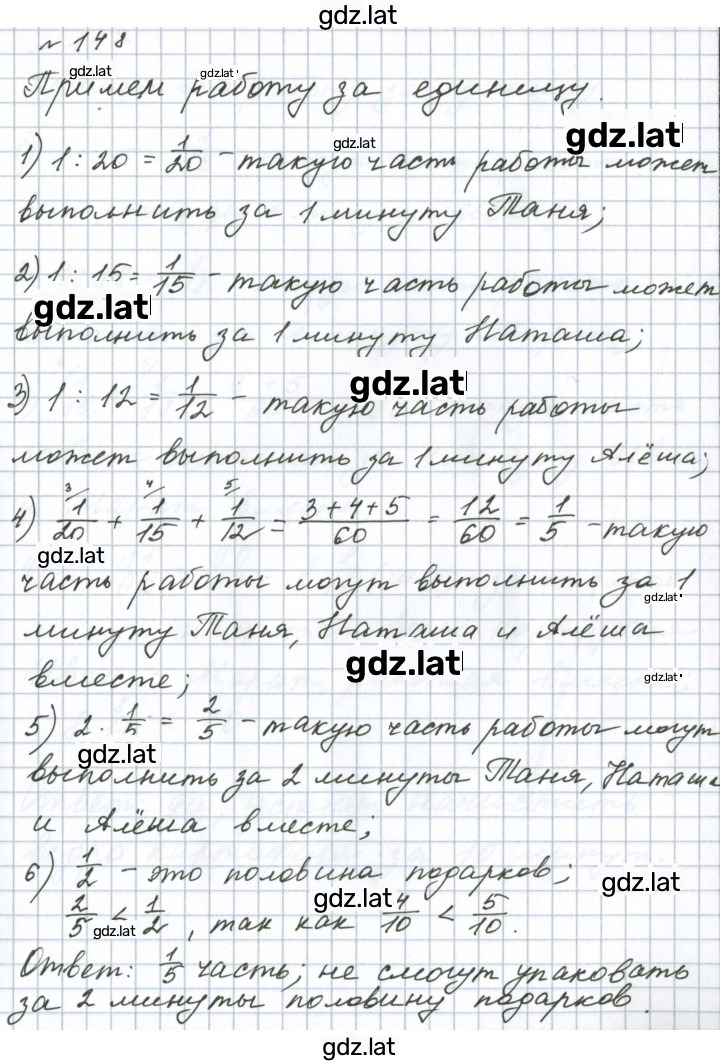 gdz.lat
№ 148
gdz.lat gdz.lat
Примем работу за единицу.
gdz.lat gdz.lat
1) 1 : 20 = 1/20 - такую часть работы может
выполнить за 1 минуту Таня;
2) 1 : 15 = 1/15 - такую часть работы может
gdz.lat
выполнить за 1 минуту Наташа;
gdz.lat
3) 1 : 12 = 1/12 - такую часть работы
может выполнить за 1 минуту Алёша;
4) 3/ 1/20 + 4/ 1/15 + 5/ 1/12 = (3+4+5)/60 = 12/60 = 1/5 - такую
gdz.lat
часть работы могут выполнить за 1
gdz.lat
минуту Таня, Наташа и Алёша
gdz.lat
вместе;
gdz.lat
5) 2 · 1/5 = 2/5 - такую часть работы могут
gdz.lat
выполнить за 2 минуты Таня, Наташа
и Алёша вместе;
6) 1/2 - это половина подарков;
gdz.lat gdz.lat
2/5 < 1/2, так как 4/10 < 5/10.
gdz.lat
Ответ: 1/5 часть; не смогут упаковать
за 2 минуты половину подарков.
gdz.lat